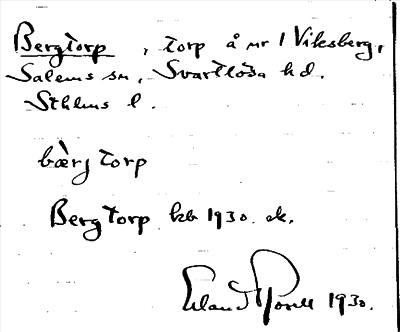 Bergtorp, torp å nr 1 Viksberg,
Salems sn, Svartlösa hd.
Sthlms l.
bærjtorp
Bergtorp kb 1930. ek.
Erland Rosell 1930.